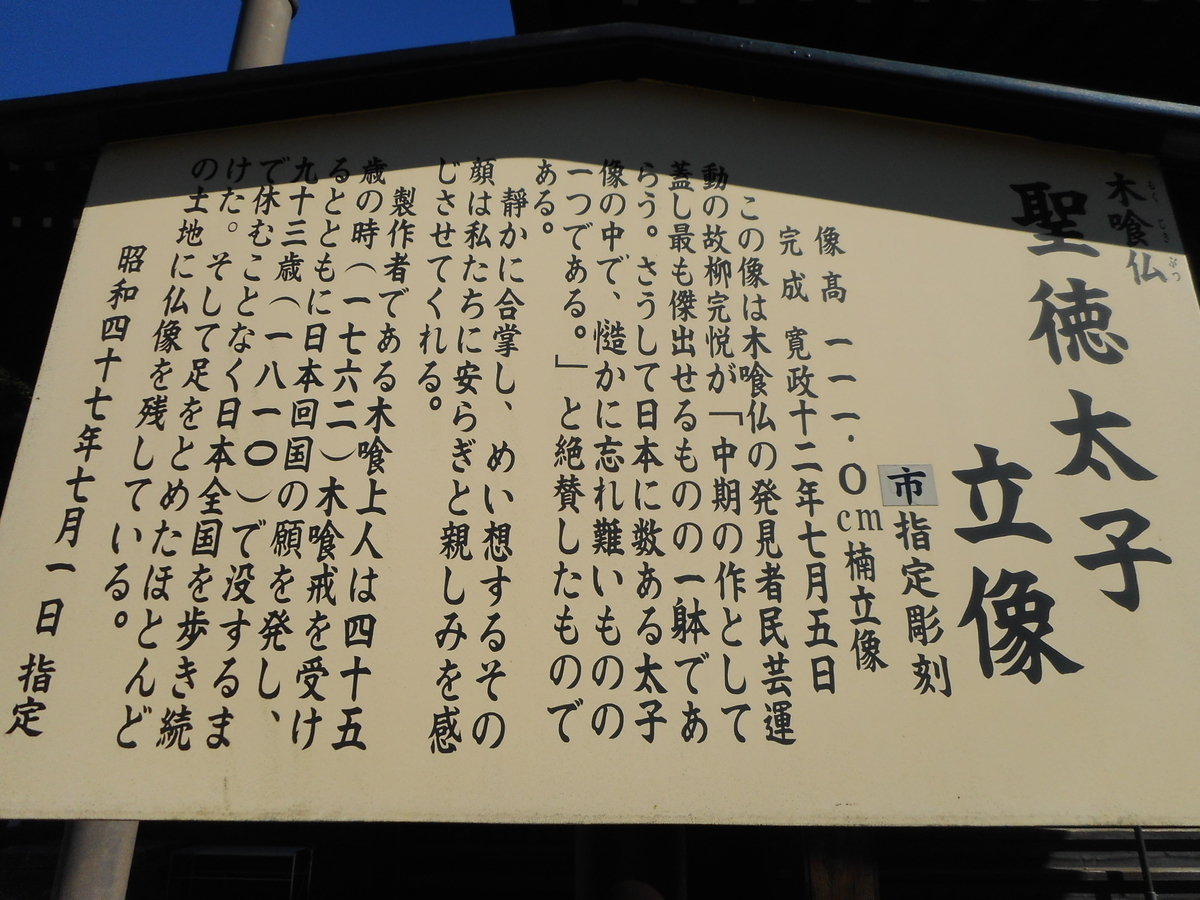 木喰仏
もくじきぶつ
聖徳太子
立像
市指定彫刻
像高 一一一.〇cm楠立像
完成 寛政十二年七月五日
この像は木喰仏の発見者民芸運
動の故柳完悦が「中期の作として
蓋し最も傑出せるものの一躰であ
らう。さうして日本に数ある太子
像の中で、慥かに忘れ難いものの
一つである。」と絶賛したもので
ある。
靜かに合掌し、めい想するその
顔は私たちに安らぎと親しみを感
じさせてくれる。
製作者である木喰上人は四十五
歳の時(一七六二)木喰戒を受け
るとともに日本回国の願を発し、
九十三歳(一八一〇)で没するま
で休むことなく日本全国を歩き続
けた。そして足をとめたほとんど
の土地に仏像を残している。
昭和四十七年七月一日 指定